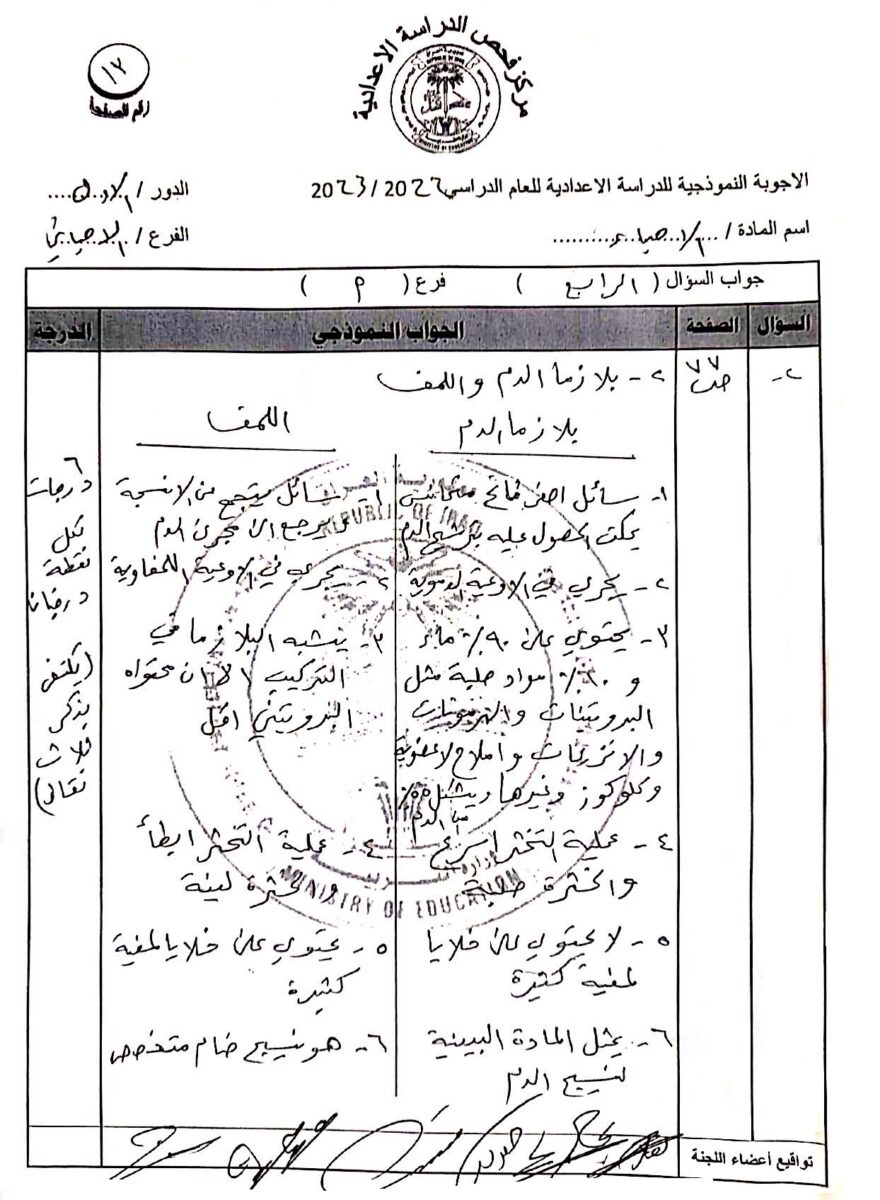 مركز فحص الدراسة الاعدادية
١٢
رقم الصفحة
الاجوبة النموذجية للدراسة الاعدادية للعام الدراسي 2022 / 2023
الدور / الاول
اسم المادة / الاحياء
الفرع / الاحيائي
جواب السؤال ( الرابع ) فرع ( م )
السؤال الصفحة الجواب النموذجي الدرجة
٢- ص٧٧ ٢- بلازما الدم واللمف
بلازما الدم
١- سائل اصفر فاتح
يمكن الحصول عليه بترشيح الدم
٢- يجري في الاوعية الدموية
٣- يحتوي على ٩٠٪ ماء
و ١٠٪ مواد صلبة مثل
البروتينات والهرمونات
والانزيمات واملاح لاعضوية
وكلوكوز وغيرها ويشكل ٥٥٪
من الدم
٤- عملية التخثر اسرع
والخثرة صلبة
٥- لا يحتوي على خلايا
لمفية كثيرة
٦- يمثل المادة البينية
لنسيج الدم
اللمف
١- سائل يتجمع من الانسجة
ويرجع الى مجرى الدم
٢- يجري في الاوعية اللمفاوية
٣- يشبه البلازما في
التركيب الا ان محتواه
البروتيني اقل
٤- عملية التخثر ابطأ
والخثرة لينة
٥- يحتوي على خلايا لمفية
كثيرة
٦- هو نسيج ضام متخصص
٦
درجات
لكل
نقطة
درجتان
(يكتفى
بذكر
ثلاث
نقاط)
REPUBLIC OF IRAQ
MINISTRY OF EDUCATION
تواقيع أعضاء اللجنة